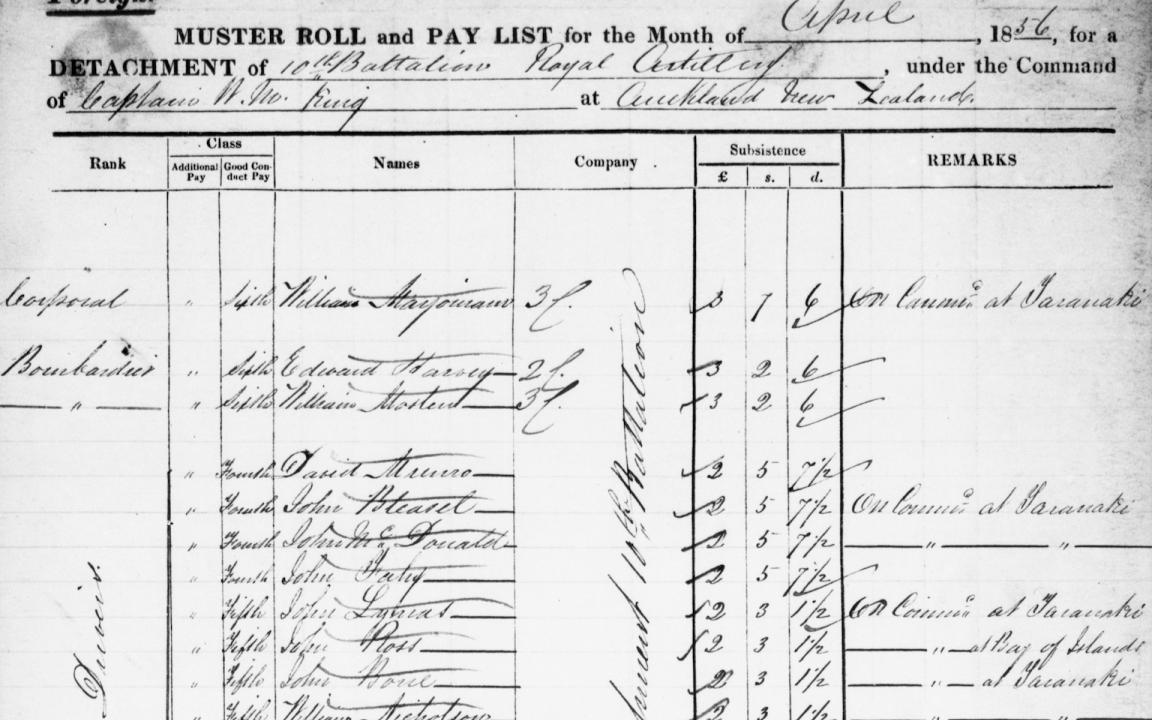 Foreign
MUSTER ROLL and PAY LIST for the Month of April, 1856, for a
DETACHMENT of 10th Battalion Royal Artillery, under the Command
of Captain W. M. King at Auckland New Zealand.
Rank Class Additional Pay Good Conduct Pay Names Company Subsistence £ s. d. REMARKS
Corporal " Sixth William Marjoiram 3 C. 3 7 6 On Comm.n at Taranaki
Bombardier " Sixth Edward Harvey 2 C. 3 2 6
" " Sixth William 3 C. 3 2 6
" Fourth David Munro 2 5 7½
" Fourth John Bleasel 2 5 7½ On Comm.n at Taranaki
" Fourth John McDonald 2 5 7½ " "
" Fourth John Fahy 2 5 7½
" Fifth John Lymas 2 3 1½ On Comm.n at Taranaki
" Fifth John Ross 2 3 1½ " at Bay of Islands
" Fifth John Bone 2 3 1½ " at Taranaki
" Fifth William Nicholson 2 3 1½
10th Battalion